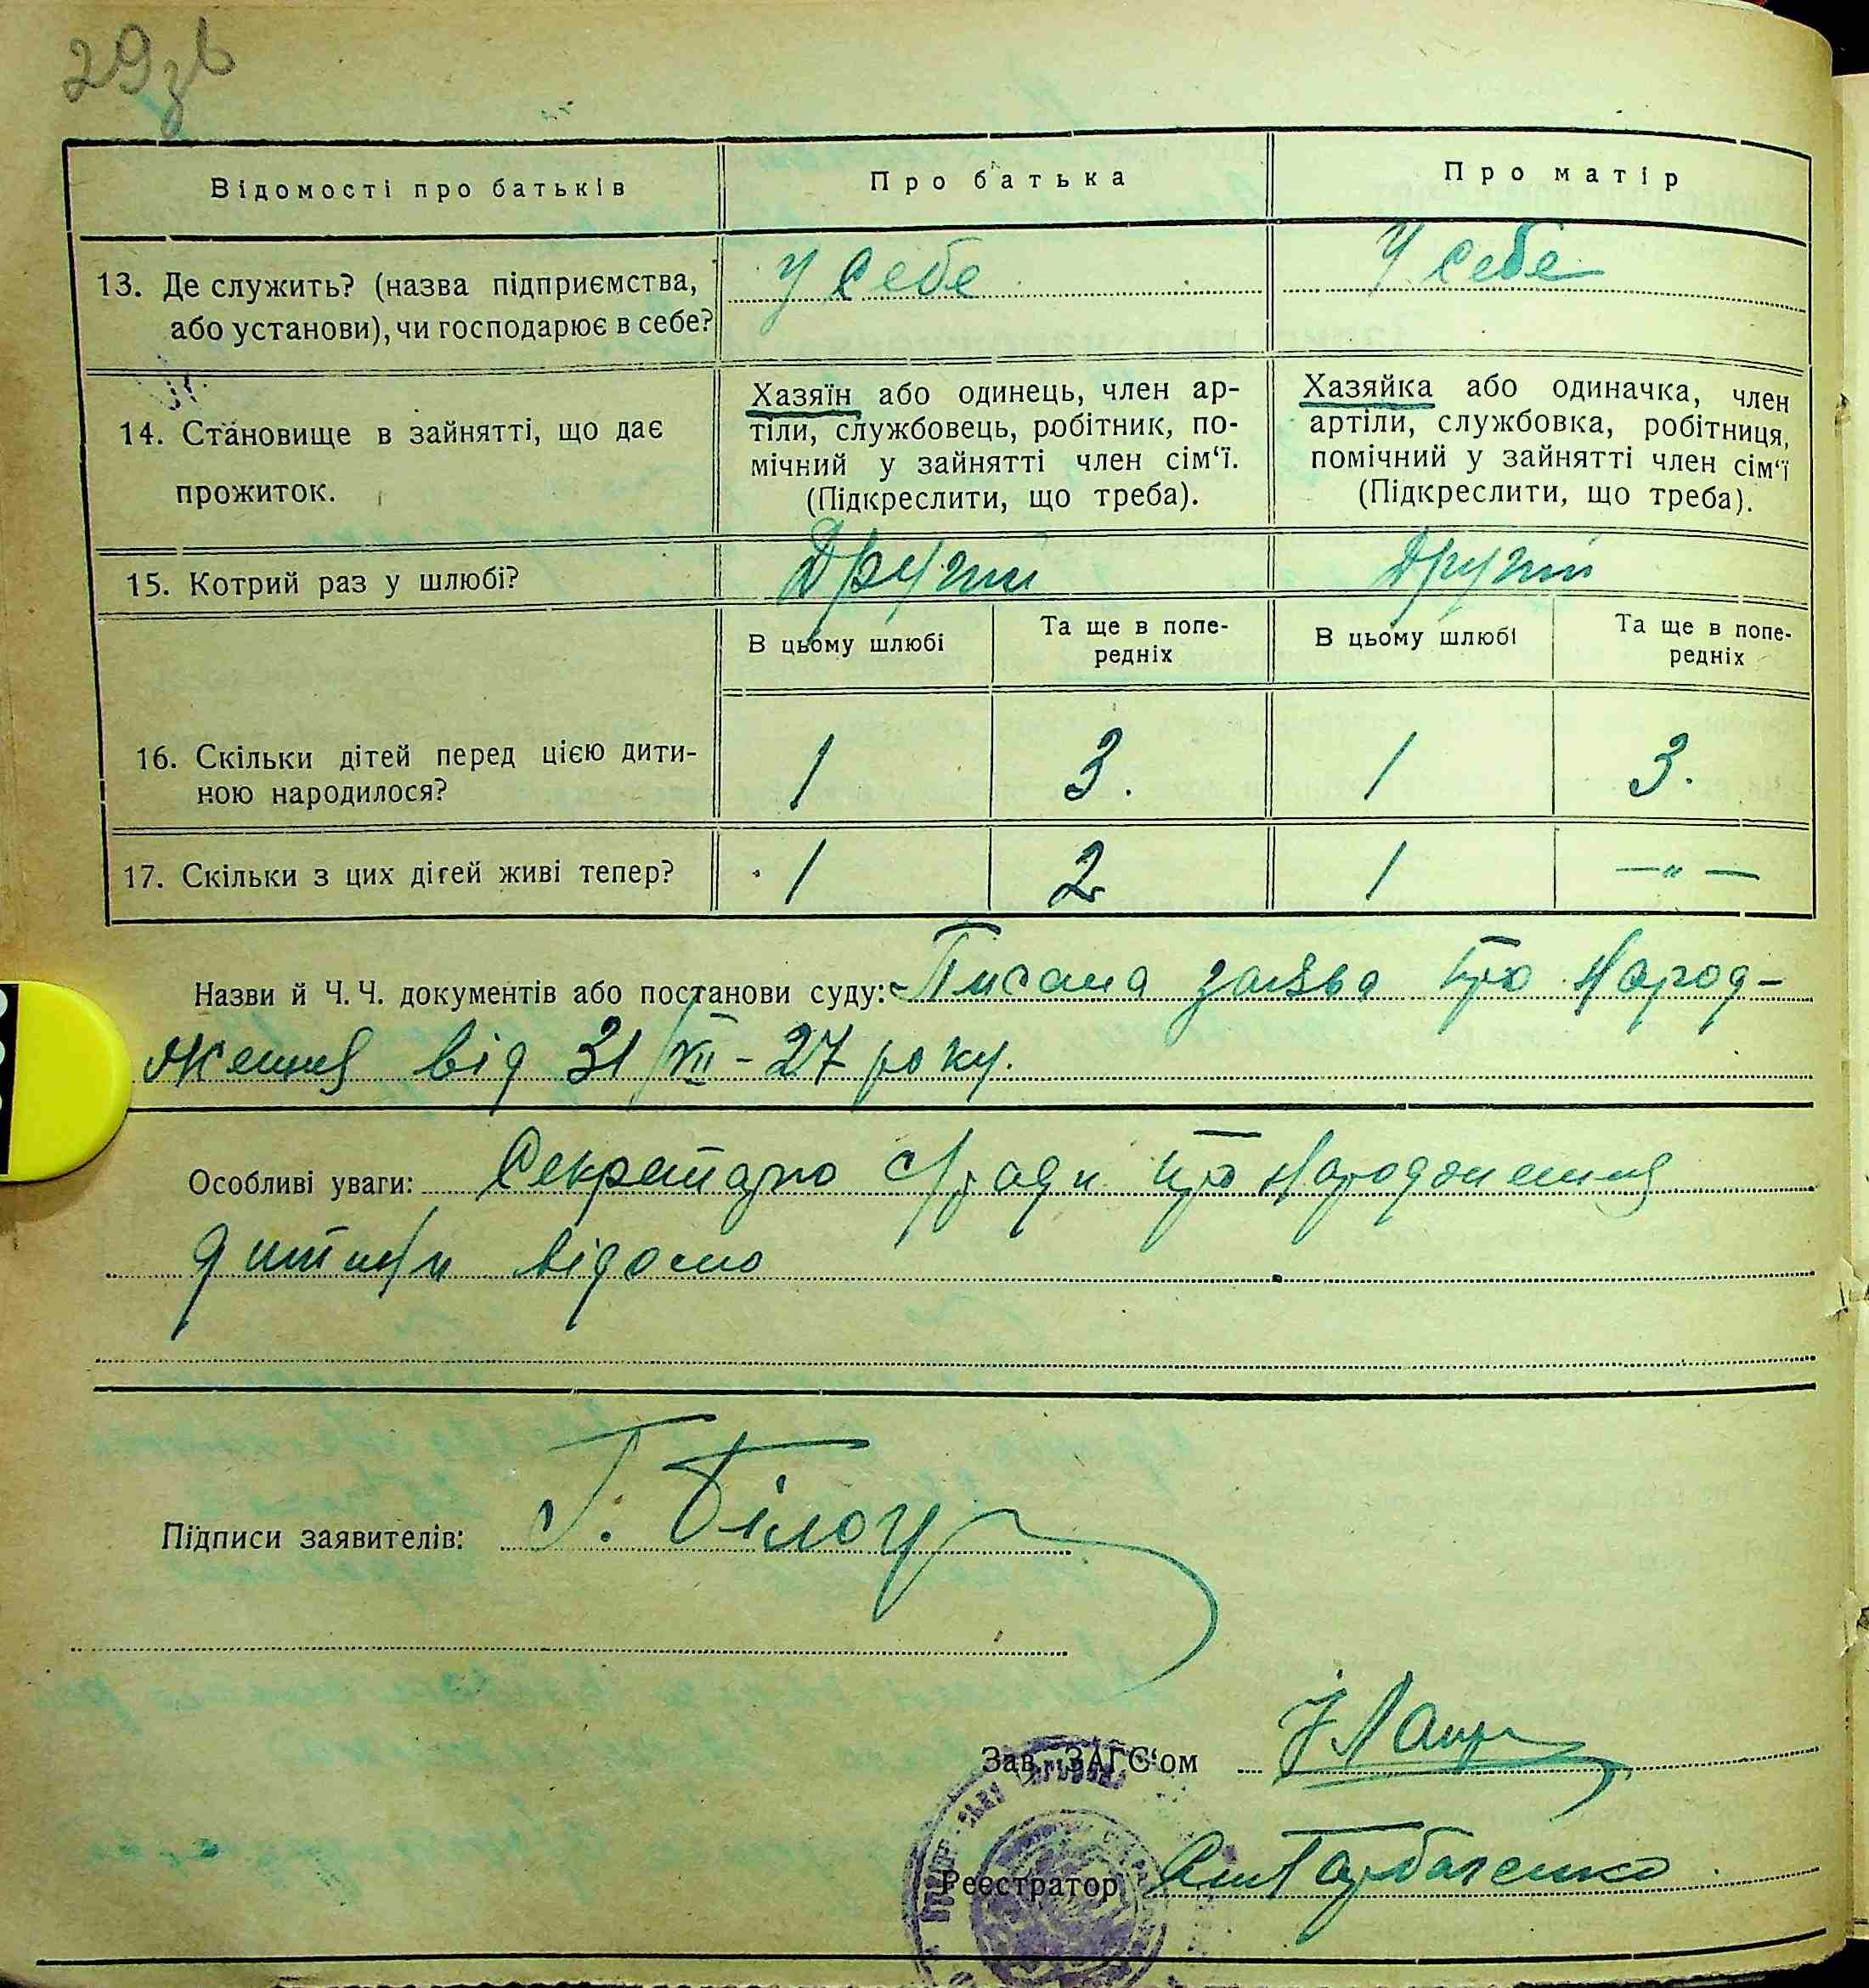 29зв
Відомості про батьків
Про батька
Про матір
13. Де служить? (назва підприємства,
або установи), чи господарює в себе?
У себе
У себе
14. Становище в зайнятті, що дає
прожиток.
Хазяїн або одинець, член ар-
тіли, службовець, робітник, по-
мічний у зайнятті член сім‘ї.
(Підкреслити, що треба).
Хазяйка або одиначка, член
артіли, службовка, робітниця,
помічний у зайнятті член сім‘ї
(Підкреслити, що треба).
15. Котрий раз у шлюбі?
Другий
Другий
В цьому шлюбі
Та ще в попе-
редніх
В цьому шлюбі
Та ще в попе-
редніх
16. Скільки дітей перед цією дити-
ною народилося?
1
3.
1
3.
17. Скільки з цих дітей живі тепер?
1
2
1
—"—
Назви й Ч. Ч. документів або постанови суду: Писана заява про народ-
ження від 31/XII-27 року.
Особливі уваги: Секретарю с/ради про народження
дитини відомо
Підписи заявителів: Г. Білоу
Зав. ЗАГС‘ом
Реєстратор